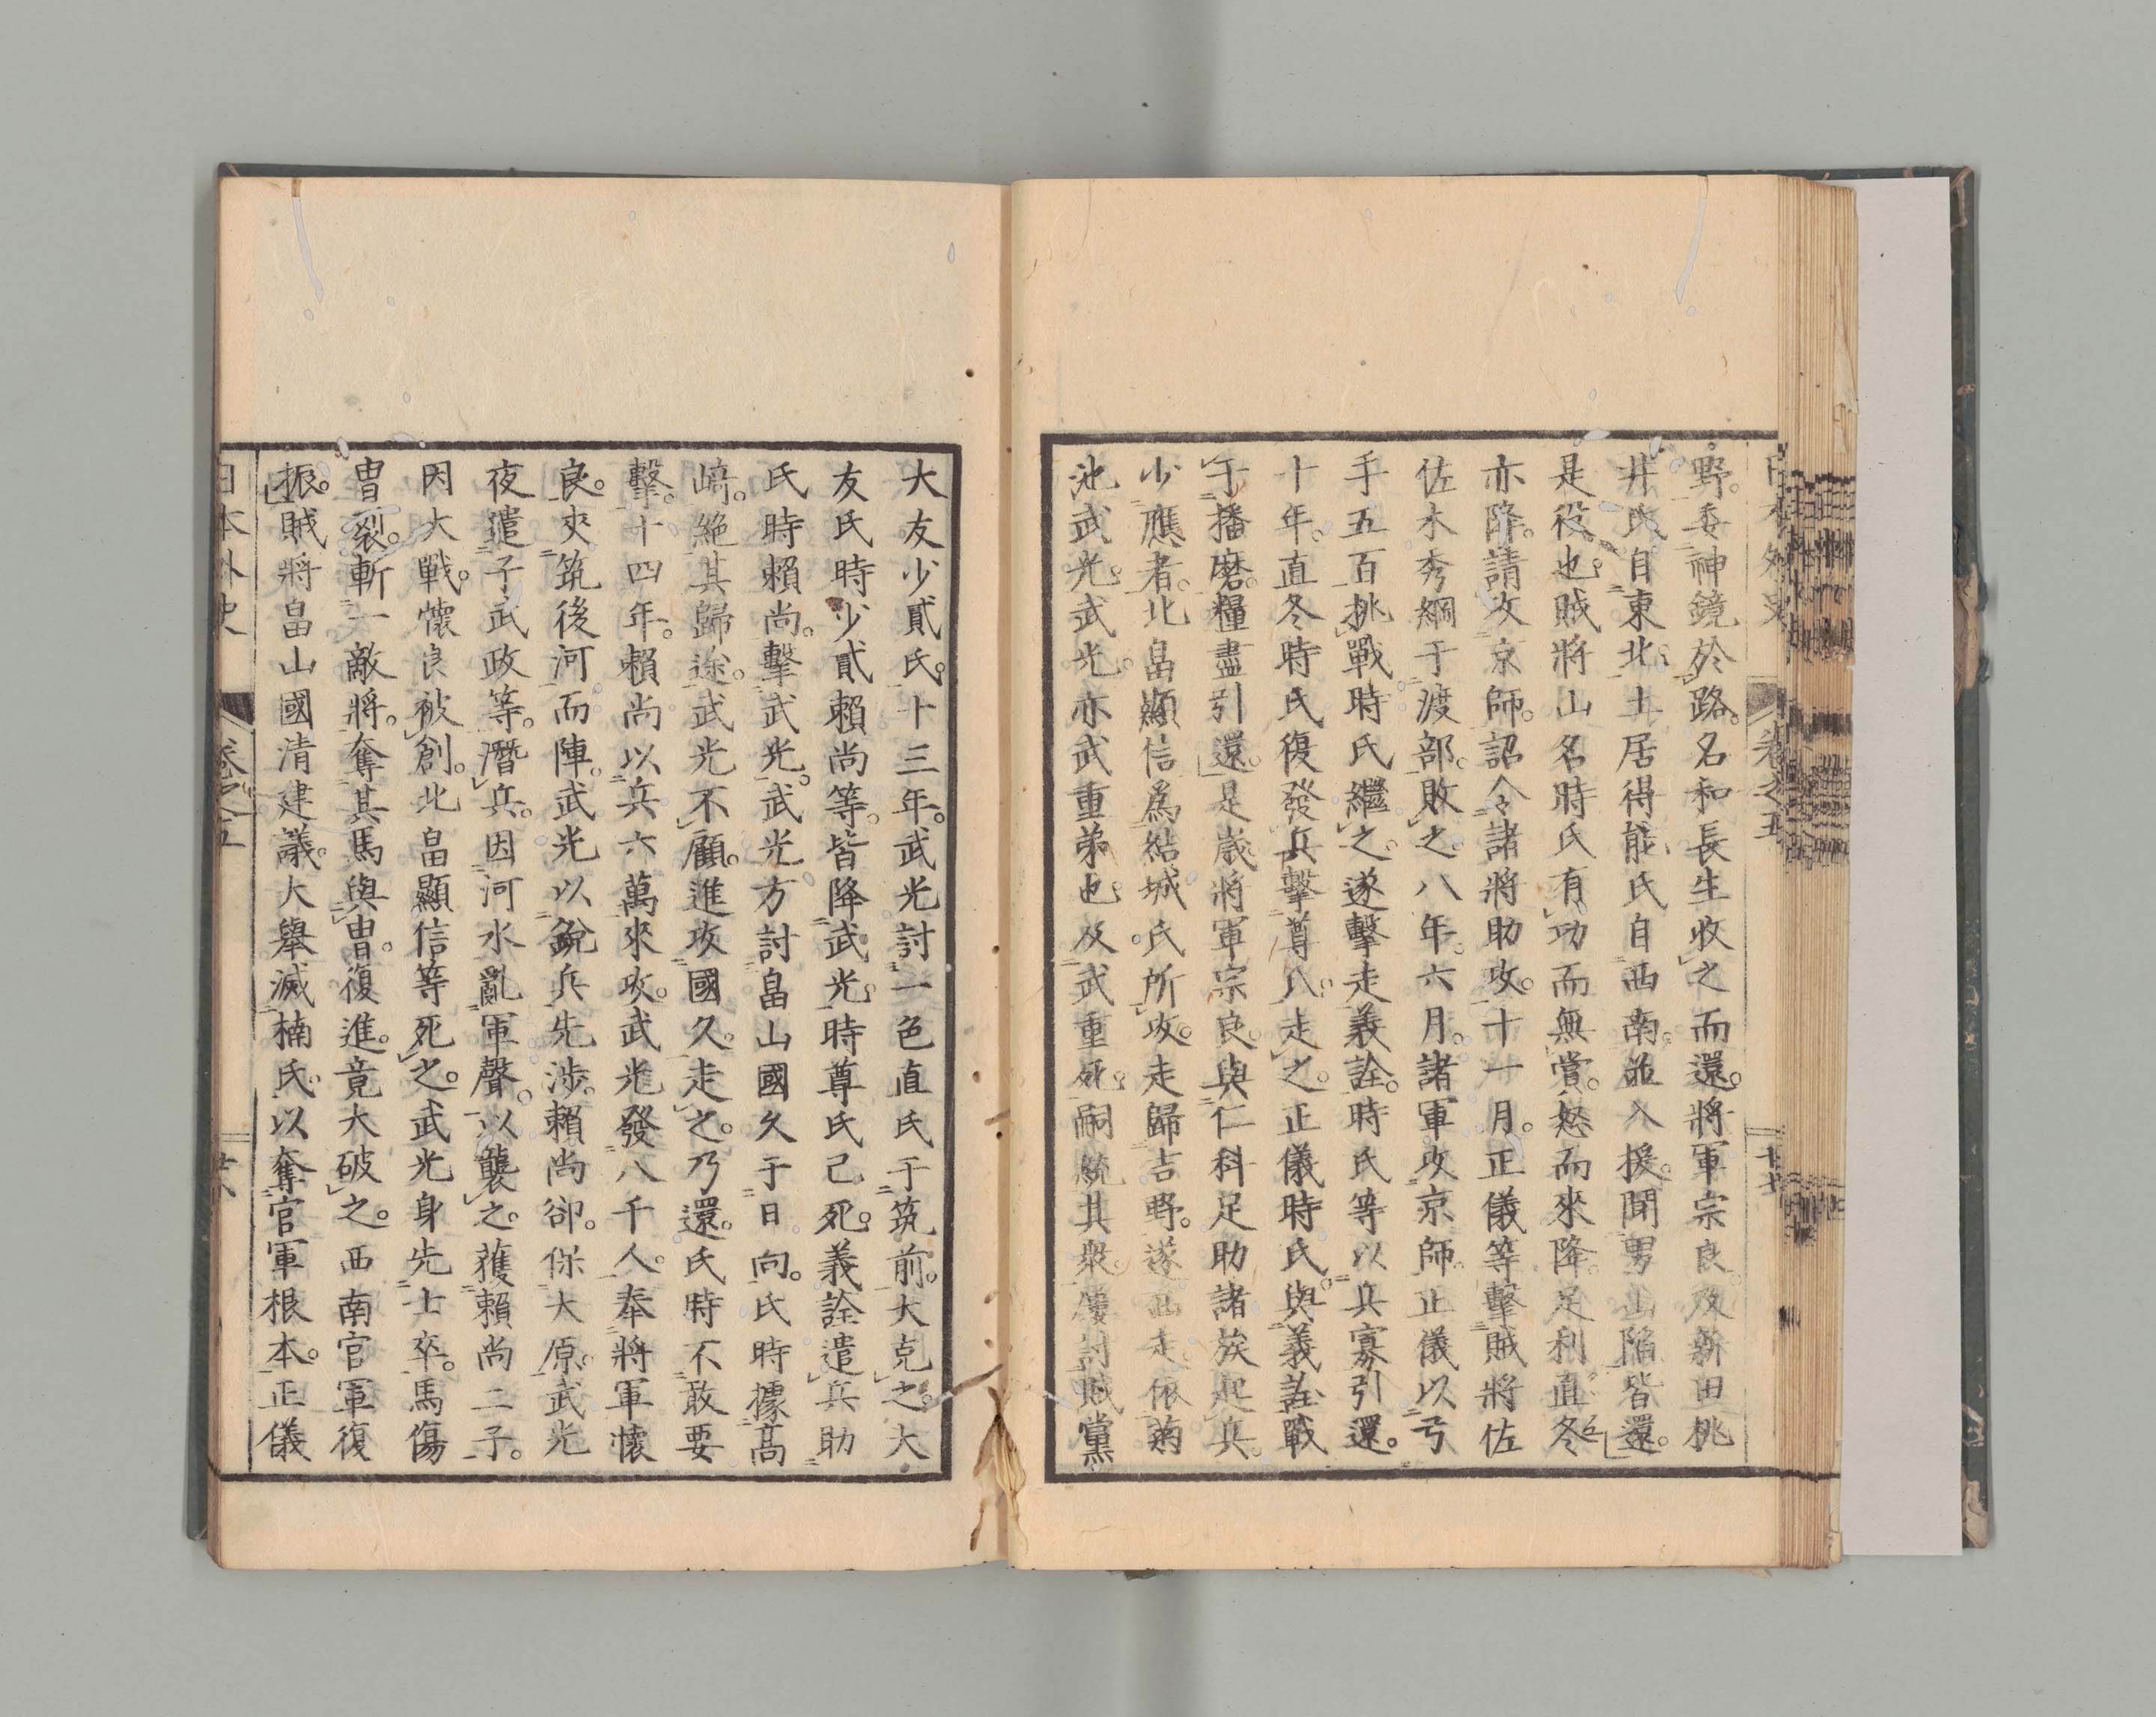 野。委神鏡於路。名和長生收之而還。將軍宗良。及新田桃
井氏自東北。土居得能氏自西南。並入援。聞男山陷。皆還。
是役也。賊將山名時氏有功而無賞。怒而來降。足利直冬
亦降。請攻京師。詔令諸將助攻。十一月。正儀等擊賊將佐
佐木秀綱于渡部。敗之。八年。六月。諸軍攻京師。正儀以弓
手五百挑戰。時氏繼之。遂擊走義詮。時氏等以兵寡引還。
十年。直冬時氏復發兵擊尊氏。走之。正儀時氏。與義詮戰
于播磨。糧盡引還。是歲將軍宗良。與仁科足助諸族起兵。
少應者。北畠顯信爲結城氏所攻。走歸吉野。遂西走。依菊
池武光。武光。亦武重弟也。及武重死。嗣統其衆。屢討賊黨
大友少貳氏。十三年。武光討一色直氏于筑前。大克之。大
友氏時少貳賴尚等。皆降武光。時尊氏已死。義詮遣兵助
氏時賴尚。擊武光。武光方討畠山國久于日向。氏時據高
崎。絕其歸途。武光不顧。進攻國久。走之。乃還。氏時不敢要
擊。十四年。賴尚以兵六萬來攻。武光發八千人。奉將軍懷
良。夾筑後河而陣。武光以銳兵先涉。賴尚卻。保大原。武光
夜遣子武政等。潛兵。因河水亂軍聲。以襲之。獲賴尚二子。
因大戰。懷良被創。北畠顯信等死之。武光身先士卒。馬傷
冑裂。斬一敵將。奪其馬與冑。復進。竟大破之。西南官軍復
振。賊將畠山國清建議。大舉滅楠氏。以奪官軍根本。正儀
日本外史 卷之五